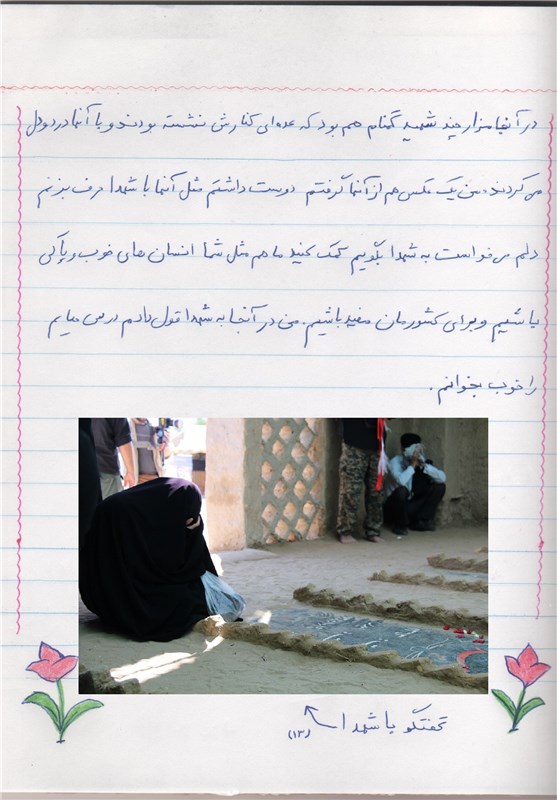 در آنجا مزار چند شهید گمنام هم بود که عده‌ای کنارش نشسته بودند و با آنها درد و دل
می کردند. من یک عکس هم از آنها گرفتم دوست داشتم مثل آنها با شهدا حرف بزنم
دلم می خواست به شهدا بگویم کمک کنید ما هم مثل شما انسان های خوب و پاکی
باشیم و برای کشورمان مفید باشیم. من در آنجا به شهدا قول دادم درس هایم
را خوب بخوانم.
گفتگو با شهدا
(۱۳)